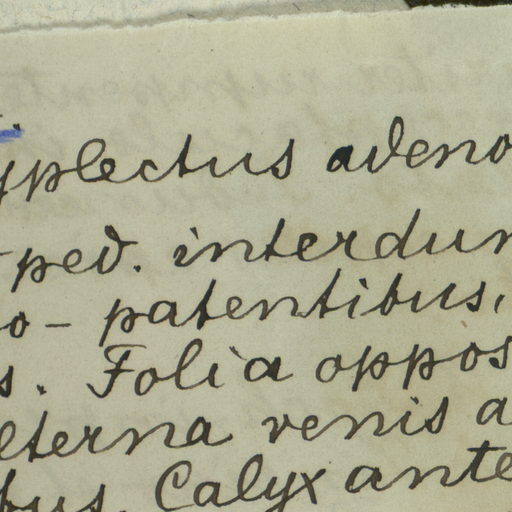 yplectus adeno
ped. interdum
o- patentibus,
s. Folia oppos
lterna venis a
bus. Calyx ante